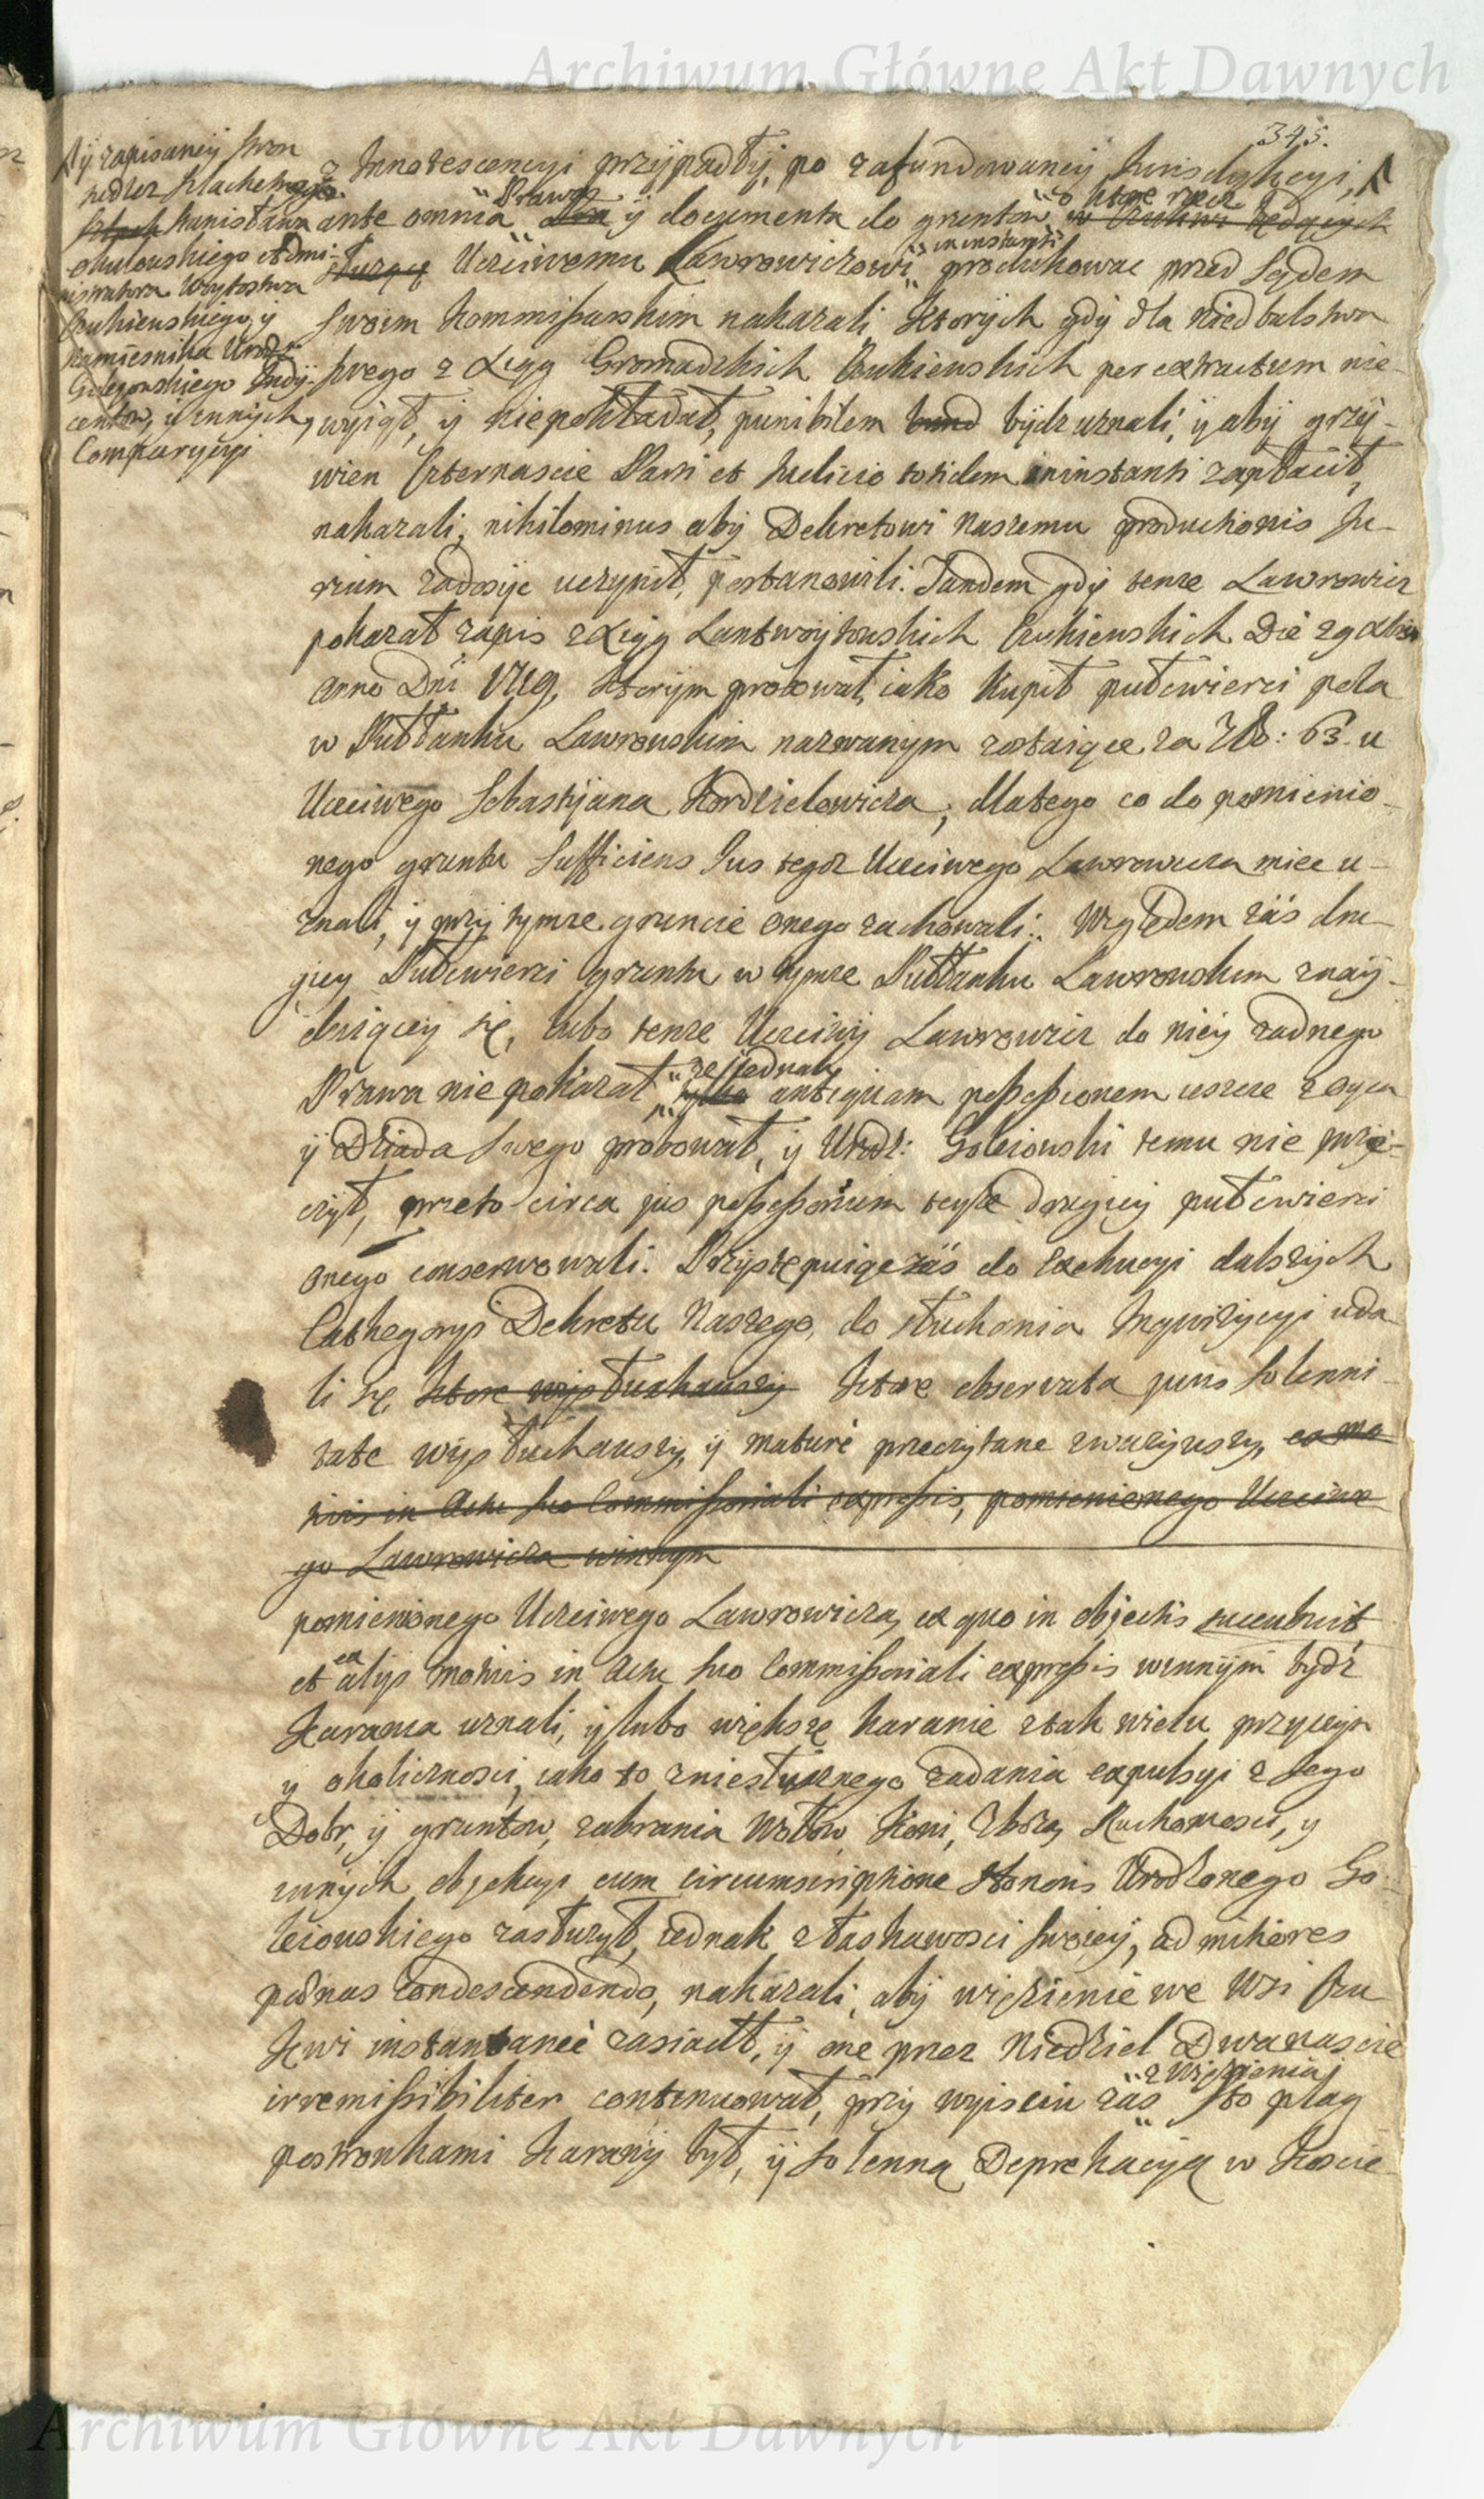 Archiwum Główne Akt Dawnych
345.
ÿ zapisaneÿ stron
tudzież szlachetnego
Stanisława
okulowskiego Admi-
nistratora Woytostwa
Cukienskiego, ÿ
Namiesnika Urodz:
Goleiowskiego Indÿ-
centow, ÿ innÿch
Comparycÿi
z Innotescencyi przÿpadłÿ, po zafundowaneÿ Jurisdykcyi,
ante omnia Prawa ÿ documenta do gruntow o które rzecz
Uczciwemu Lawrowiczowi in instanti produkować przed Sądem
Swoim Kommissarskim nakazali, Ktorÿch gdÿ dla niedbalstwa
swego z Xiąg Gromadzkich per extractum nie-
wÿiął, ÿ niepokładał, punibilem bÿdz uznali, ÿ abÿ grzÿ-
wien Czternascie Parti et Judicio totidem in instanti zapłacił,
nakazali, nihilominus abÿ Dekretowi Naszemu productionis Ju-
rium zadosÿc uczynił, postanowili. Tandem gdÿ tenze Lawrowicz
pokazał zapis z Xiąg Lantwoÿtowskich Die 29 Xbris
Anno Dni 1719, Ktorÿm probował, iako Kupił pułcwierci pola
w Pułłanku Lawrowskim nazwanym zostaiące za Zł: 63. u
Uczciwego Sebastÿana Kordzielowicza, dlatego co do pomienio-
nego gruntu sufficiens Jus tegoz Uczciwego Lawrowicza miec u-
znali, ÿ przÿ tymze gruncie onego zachowali. Względem zaś dru-
gieÿ Pułcwierci gruntu w tymze Pułłanku Lawrowskim znaÿ-
duiąceÿ się, lubo tenze Uczciwÿ Lawrowicz do nieÿ zadnego
Prawa nie pokazał, ze jednak antiquam possessionem ieszcze z oyca
ÿ Dziada swego probował, ÿ Urodz: Goleiowski temu nie prze-
czÿł, przeto circa jus possessorium teÿze drugieÿ pułcwierci
onego conserwowali. Przÿstępuiąc zaś do Exekucyi dalszÿch
Cathegoryi Dekretu Naszego, do słuchania Inquizÿcyi uda-
li się, ktore wÿsłuchawszÿ Ktore observata juris solenni-
tate wÿsłuchawszÿ, ÿ maturè przeczytane zwazÿwszÿ, ex mo-
tivis in Actu suo Commissoriali expressis, pomienionego Uczciwe-
go Lawrowicza winnym
pomienionego Uczciwego Lawrowicza, ex quo in objectis succubuit
et ex alÿs motivis in Actu suo Commissoriali expressis winnÿm bÿdź
Karania uznali, ÿ lubo większe karanie z tak wielu przyczyn
ÿ okolicznosci, iako to zniesłusznego zadania expulsyi z tego
Dobr, ÿ gruntow, zabrania Wołow, Koni, Zboza, Ruchomosci, ÿ
innÿch objekcyi cum circumscriptione Honoris Urodzonego Go-
leiowskiego zasłuzył, iednak z łaskawosci swoieÿ, ad mitiores
poenas condescendendo, nakazali, abÿ więzienie we Wsi
instantaneè zasiadł, ÿ one przez Niedziel Dwanascie
irremissibiliter continuował, przÿ wÿisciu zas z więzienia, sto plag
postronkami Karanÿ bÿł, ÿ solenną Deprekacÿą w Koscie-
Archiwum Główne Akt Dawnych